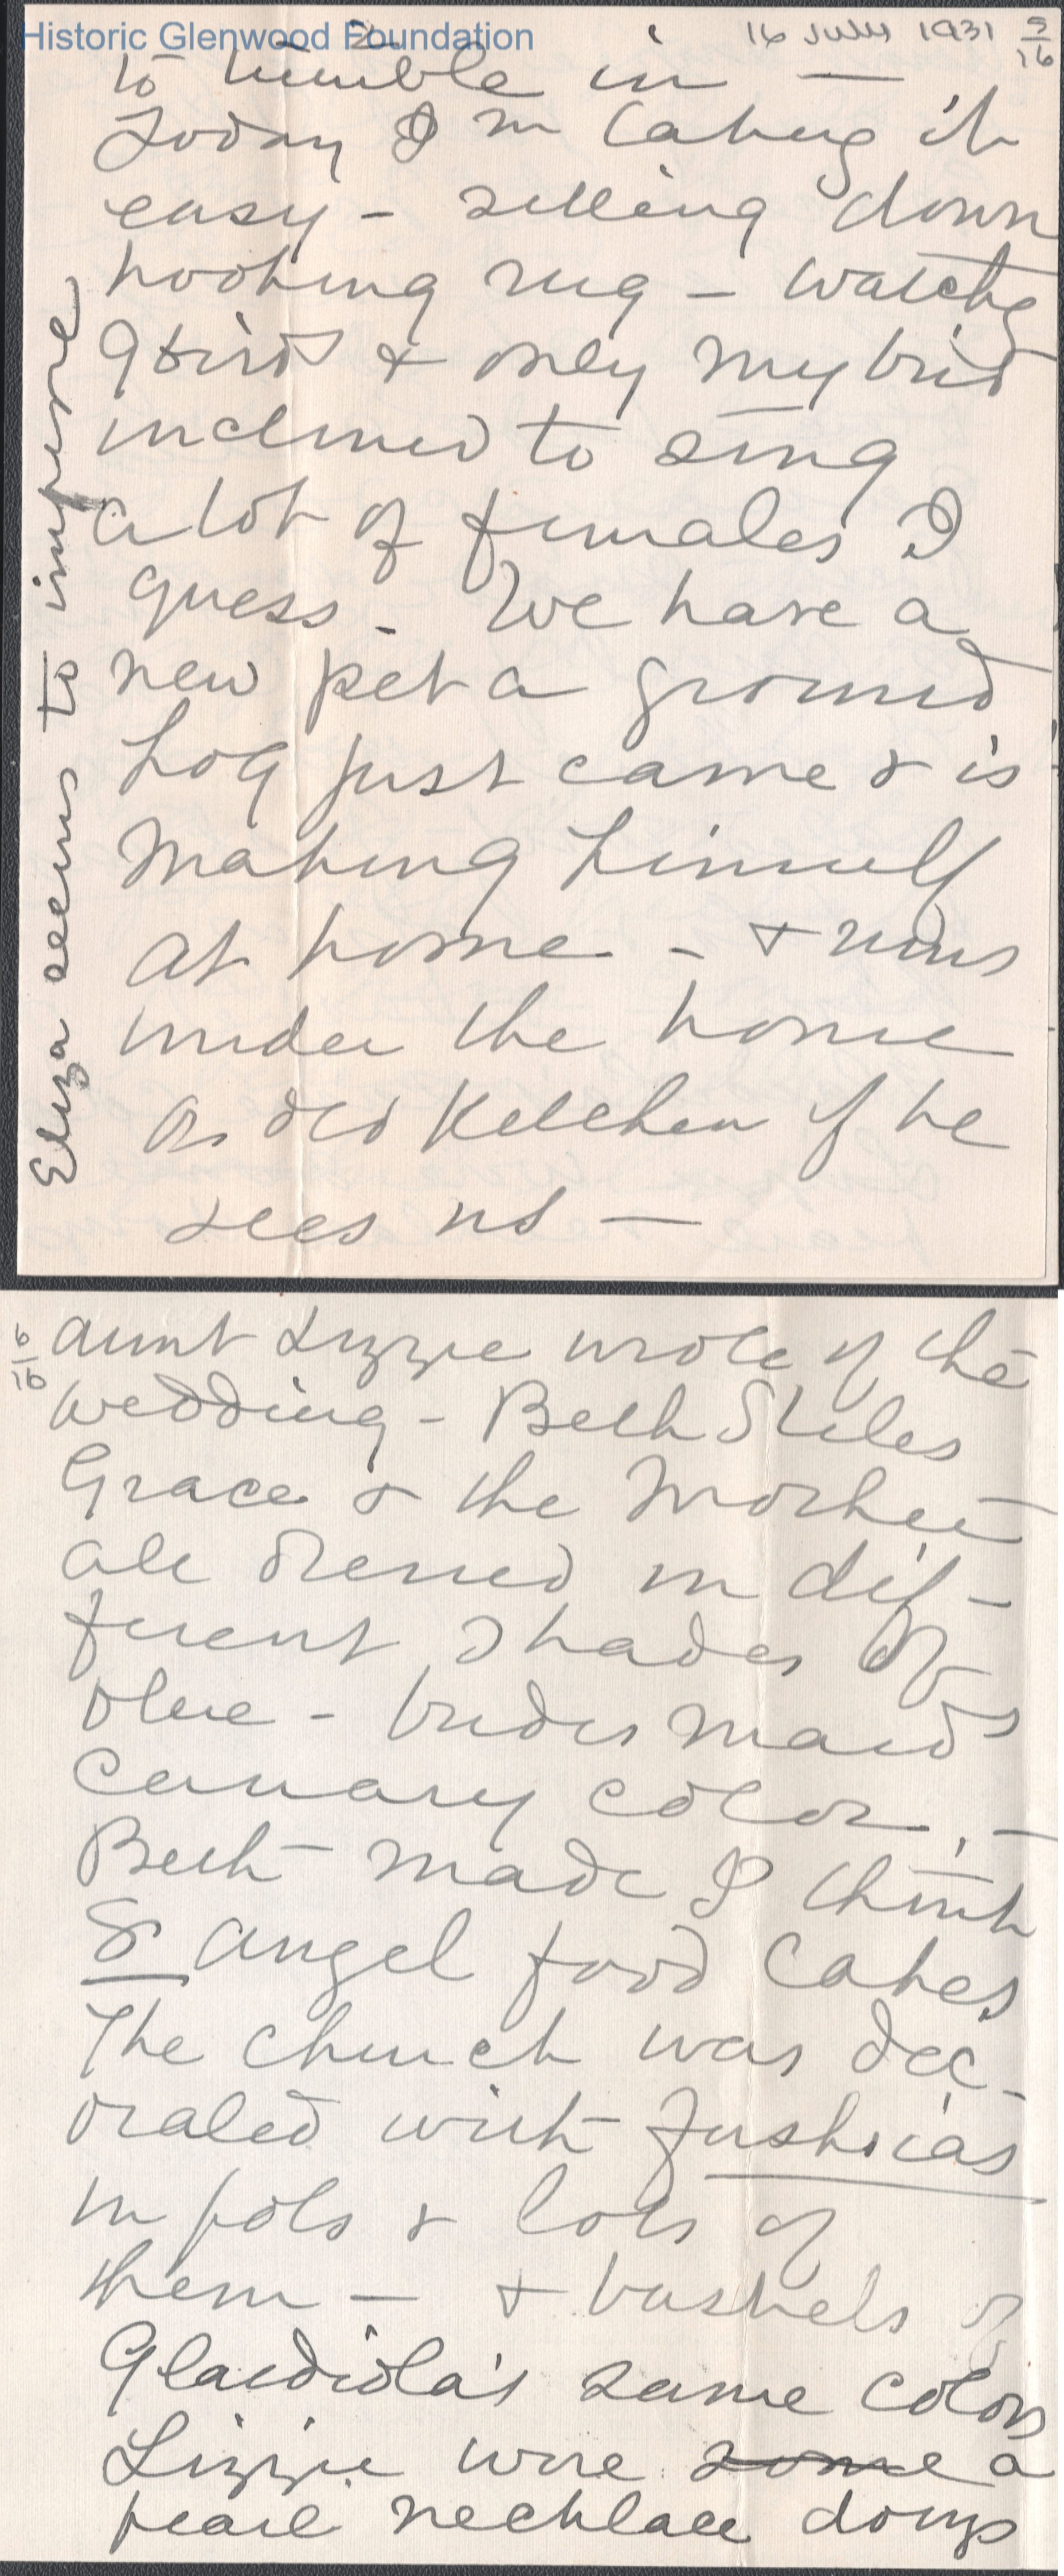 Historic Glenwood Foundation
16 July 1931 5/16
to tumble in —
Today I'm taking it
easy - sitting down
hooking rug - watchg
9 birds & only my bird
inclined to sing
a lot of females I
guess - We have a
new pet a ground
hog just came & is
making himself
at home - & runs
under the house
or old Kitchen if he
sees us —
Eliza seems to improve
6/16
Aunt Lizzie wrote of the
wedding - Beth Stiles
Grace & the Mother
all dressed in dif-
ferent shades of
blue - brides maids
Canary color. -
Beth made I think
8 angel food cakes
The church was dec-
orated with Fushias
in pots & lots of
them - & bushels of
Glaediola's same colors
Lizzie wore some a
pearl necklace